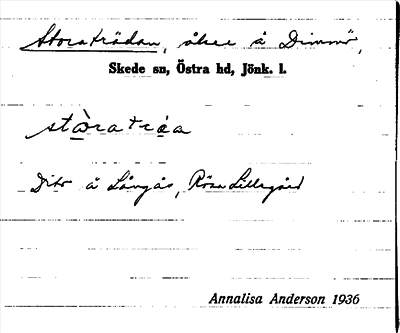 Storaträdan, åker å Dimmö,
Skede sn, Östra hd, Jönk. l.
stòratréa
Dito å Lövgås, Rösa Lillegård
Annalisa Anderson 1936